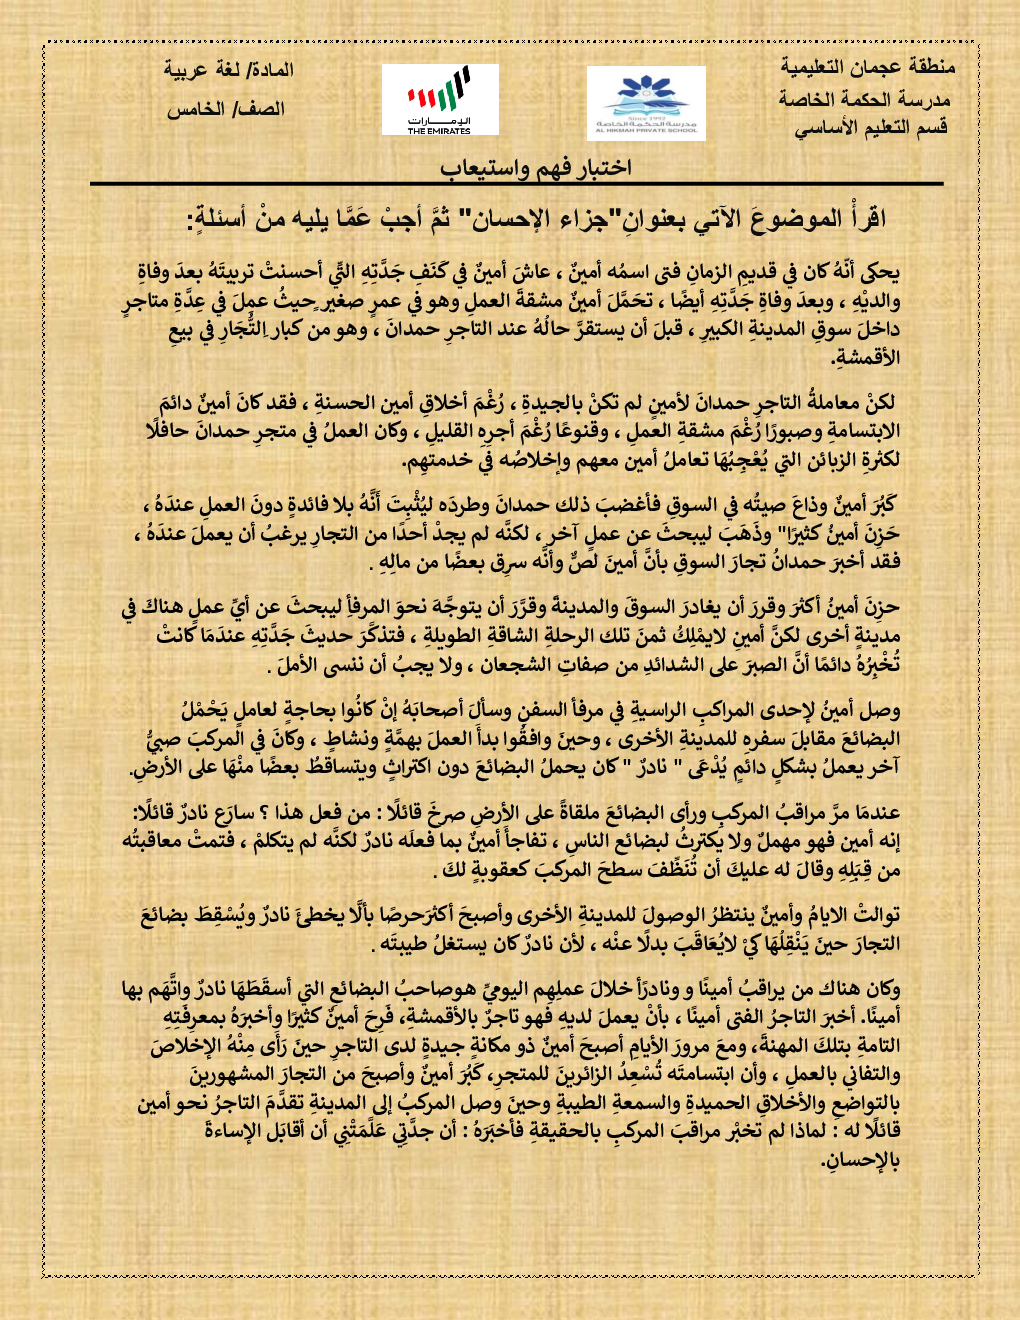 منطقة عجمان التعليمية
مدرسة الحكمة الخاصة
قسم التعليم الأساسي
Since 1992
مدرسة الحكمة الخاصة
AL HIKMAH PRIVATE SCHOOL
الإمارات
THE EMIRATES
المادة/ لغة عربية
الصف/ الخامس
اختبار فهم واستيعاب
اقرأْ الموضوعَ الآتي بعنوانِ"جزاء الإحسان" ثمَّ أجبْ عَمَّا يليه منْ أسئلةٍ:
يحكى أنّهُ كان في قديمِ الزمانِ فتى اسمُه أمينٌ ، عاشَ أمينٌ في كَنَفِ جَدَّتِهِ التِّي أحسنتْ تربيتَهُ بعدَ وفاةِ
والديْهِ ، وبعدَ وفاةِ جَدَّتِهِ أيضًا ، تحَمَّلَ أمينٌ مشقةَ العملِ وهو في عمرٍ صغيرٍ حيثُ عمِلَ في عِدَّةِ متاجرٍ
داخلَ سوقِ المدينةِ الكبيرِ ، قبلَ أن يستقرَّ حالُهُ عند التاجرِ حمدانَ ، وهو من كبارِ التُّجَارِ في بيعِ
الأقمشةِ.
لكنْ معاملةُ التاجرِ حمدانَ لأمينٍ لم تكنْ بالجيدةِ ، رُغْمَ أخلاقِ أمين الحسنةِ ، فقد كانَ أمينٌ دائمَ
الابتسامةِ وصبورًا رُغْمَ مشقةِ العملِ ، وقنوعًا رُغْمَ أجرِهِ القليلِ ، وكان العملُ في متجرِ حمدانَ حافلًا
لكثرةِ الزبائن التي يُعْجِبُهَا تعاملُ أمين معهم وإخلاصُه في خدمتهِم.
كَبُرَ أمينٌ وذاعَ صيتُه في السوقِ فأغضبَ ذلك حمدانَ وطردَه ليُثْبِتَ أَنَّهُ بلا فائدةٍ دونَ العملِ عندَهُ ،
حَزِنَ أمينُ كثيرًا" وذَهَبَ ليبحثَ عن عملٍ آخر ، لكنَّه لم يجدْ أحدًا من التجارِ يرغبُ أن يعملَ عندَهُ ،
فقد أخبرَ حمدانُ تجارَ السوقِ بأنَّ أمينَ لصٌّ وأنَّه سرِق بعضًا من مالِهِ .
حزِنَ أمينُ أكثرَ وقررَ أن يغادرَ السوقَ والمدينةَ وقرَّرَ أن يتوجَّهَ نحوَ المرفأِ ليبحثَ عن أيِّ عملٍ هناكَ في
مدينةٍ أخرى لكنَّ أمينِ لايمْلِكُ ثمنَ تلك الرحلةِ الشاقةِ الطويلةِ ، فتذكَّرَ حديثَ جَدَّتِهِ عندَمَا كانتْ
تُخْبِرُهُ دائمًا أنَّ الصبرَ على الشدائدِ من صفاتِ الشجعان ، ولا يجبُ أن ننسى الأملَ .
وصل أمينُ لإحدى المراكبِ الراسيةِ في مرفأ السفنِ وسألَ أصحابَهُ إنْ كانُوا بحاجةٍ لعاملٍ يَحْمْلُ
البضائعَ مقابلَ سفرِهِ للمدينةِ الأخرى ، وحينَ وافقُوا بدأَ العملَ بهمَّةٍ ونشاطٍ ، وكانَ في المركبَ صبيُّ
آخر يعملُ بشكلٍ دائمٍ يُدْعَى " نادرٌ " كان يحملُ البضائعَ دون اكتراثٍ ويتساقطُ بعضًا منْهَا على الأرضِ.
عندمَا مرَّ مراقبُ المركبِ ورأى البضائعَ ملقاةً على الأرضِ صرخَ قائلًا : من فعل هذا ؟ سارَع نادرٌ قائلًا:
إنه أمين فهو مهملٌ ولا يكترثُ لبضائع الناسِ ، تفاجأَ أمينٌ بما فعلَه نادرٌ لكنَّه لم يتكلمْ ، فتمتْ معاقبتُه
من قِبَلِهِ وقالَ له عليكَ أن تُنَظِّفَ سطحَ المركبَ كعقوبةٍ لكَ .
توالتْ الايامُ وأمينٌ ينتظرُ الوصولَ للمدينةِ الأخرى وأصبحَ أكثرَحرصًا بألَّا يخطئَ نادرٌ ويُسْقِطَ بضائعَ
التجارَ حينَ يَنْقِلُهَا كَيْ لايُعَاقَبَ بدلًا عنْه ، لأن نادرٌ كان يستغلُ طيبتَه .
وكان هناك من يراقبُ أمينًا و ونادرًأ خلالَ عملِهِم اليوميِّ هوصاحبُ البضائعِ التي أسقَطَهَا نادرٌ واتَّهَم بها
أمينًا. أخبرَ التاجرُ الفتى أمينًا ، بأنْ يعملَ لديهِ فهو تاجرٌ بالأقمشةِ، فَرِحَ أمينٌ كثيرًا وأخبرَهُ بمعرِفَتِهِ
التامةِ بتلكَ المهنةَ، ومعَ مرورَ الأيامِ أصبحَ أمينٌ ذو مكانةٍ جيدةٍ لدى التاجرِ حينَ رَأَى مِنْهُ الإخلاصَ
والتفاني بالعملِ ، وأن ابتسامتَه تُسْعِدُ الزائرينَ للمتجرِ، كَبُرَ أمينٌ وأصبحَ من التجارَ المشهورينَ
بالتواضعِ والأخلاقِ الحميدةِ والسمعةِ الطيبةِ وحينَ وصل المركبُ إلى المدينةِ تقدَّمَ التاجرُ نحو أمين
قائلًا له : لماذا لم تخبْر مراقبَ المركبِ بالحقيقةِ فأخبَرَهُ : أن جدَّتِي عَلَّمَتْنِي أن أقابَل الإساءةَ
بالإحسانِ.